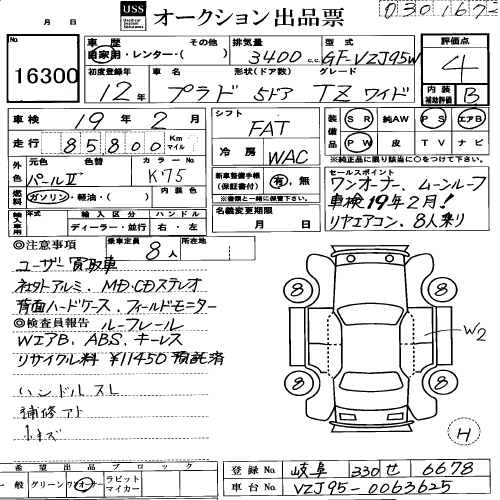 USS オークション出品票
0301672
月 日
No. 16300
車歴 自家用・レンター・( ) その他
排気量 3400 c.c.
型式 GF-VZJ95W
評価点 4
初度登録年 12年
車名 プラド
形状(ドア数) 5ドア
グレード TZ ワイド
内装補助評価 B
車検 19年 2月
シフト FAT
装備品 SR 純AW PS エアB
PW 皮 TV ナビ
※純正品に限り該当に○をつけて下さい
走行 85800 Km マイル
冷房 WAC
外色 元色 パールII 色替 カラーNo. K75
新車整備手帳(保証書付) 有・無
※書類と一緒に保管下さい
燃料 ガソリン・軽油・( ) 内装色
名義変更期限 月 日
輸入車用 年式 輸入区分 ディーラー・並行 ハンドル 右・左
セールスポイント
ワンオーナー、ムーンルーフ
車検19年2月!
リヤエアコン、8人乗り
◎注意事項 乗車定員 8人 所在地
ユーザー買取車
ネオクトアルミ、MD.CDステレオ
背面ハードケース、フィールドモニター
◎検査員報告 ルーフレール
WエアB、ABS、キーレス
リサイクル料 ¥11450 預託済
ハンドルスレ
補修アト
小キズ
8 8 8 8
W2
H
希望出品ブロック
一般 グリーン ワンオーナー ラビットマイカー
登録No. 岐阜 330 せ 6678
車台No. VZJ95-0063625